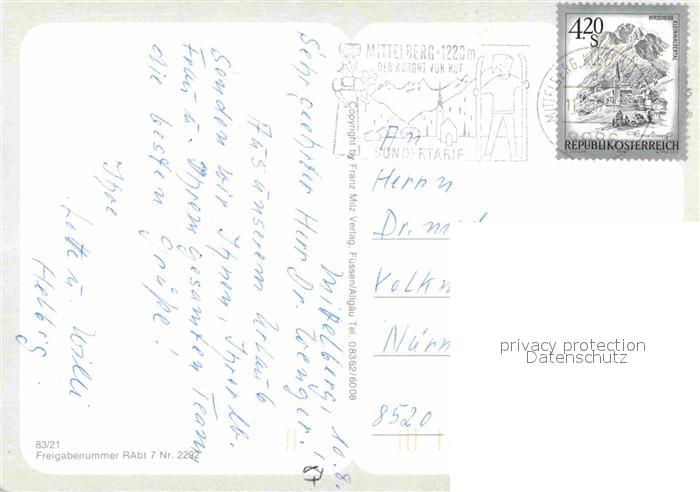 Mittelberg, 10.8.87
Sehr geehrter Herr Dr. Wenger!
Aus unserem Urlaub
senden wir Ihnen, Ihrer lb.
Frau u. Ihrem gesamten Team,
die besten Grüße!
Ihre
Lotte u. Willi
Helbig.
83/21
Freigabenummer RAbt 7 Nr. 2292
Copyright by Franz Milz Verlag, Füssen/Allgäu Tel. 08362/6008
MITTELBERG · 1220 m
DER KURORT VON RUF
SONDERTARIF
MITTELBERG, KLEINW
4.20
S
HIRSCHEGG KLEINWALSERTAL
REPUBLIK ÖSTERREICH
An
Herrn
Dr. med
Volk
Nürn
8520
privacy protection
Datenschutz